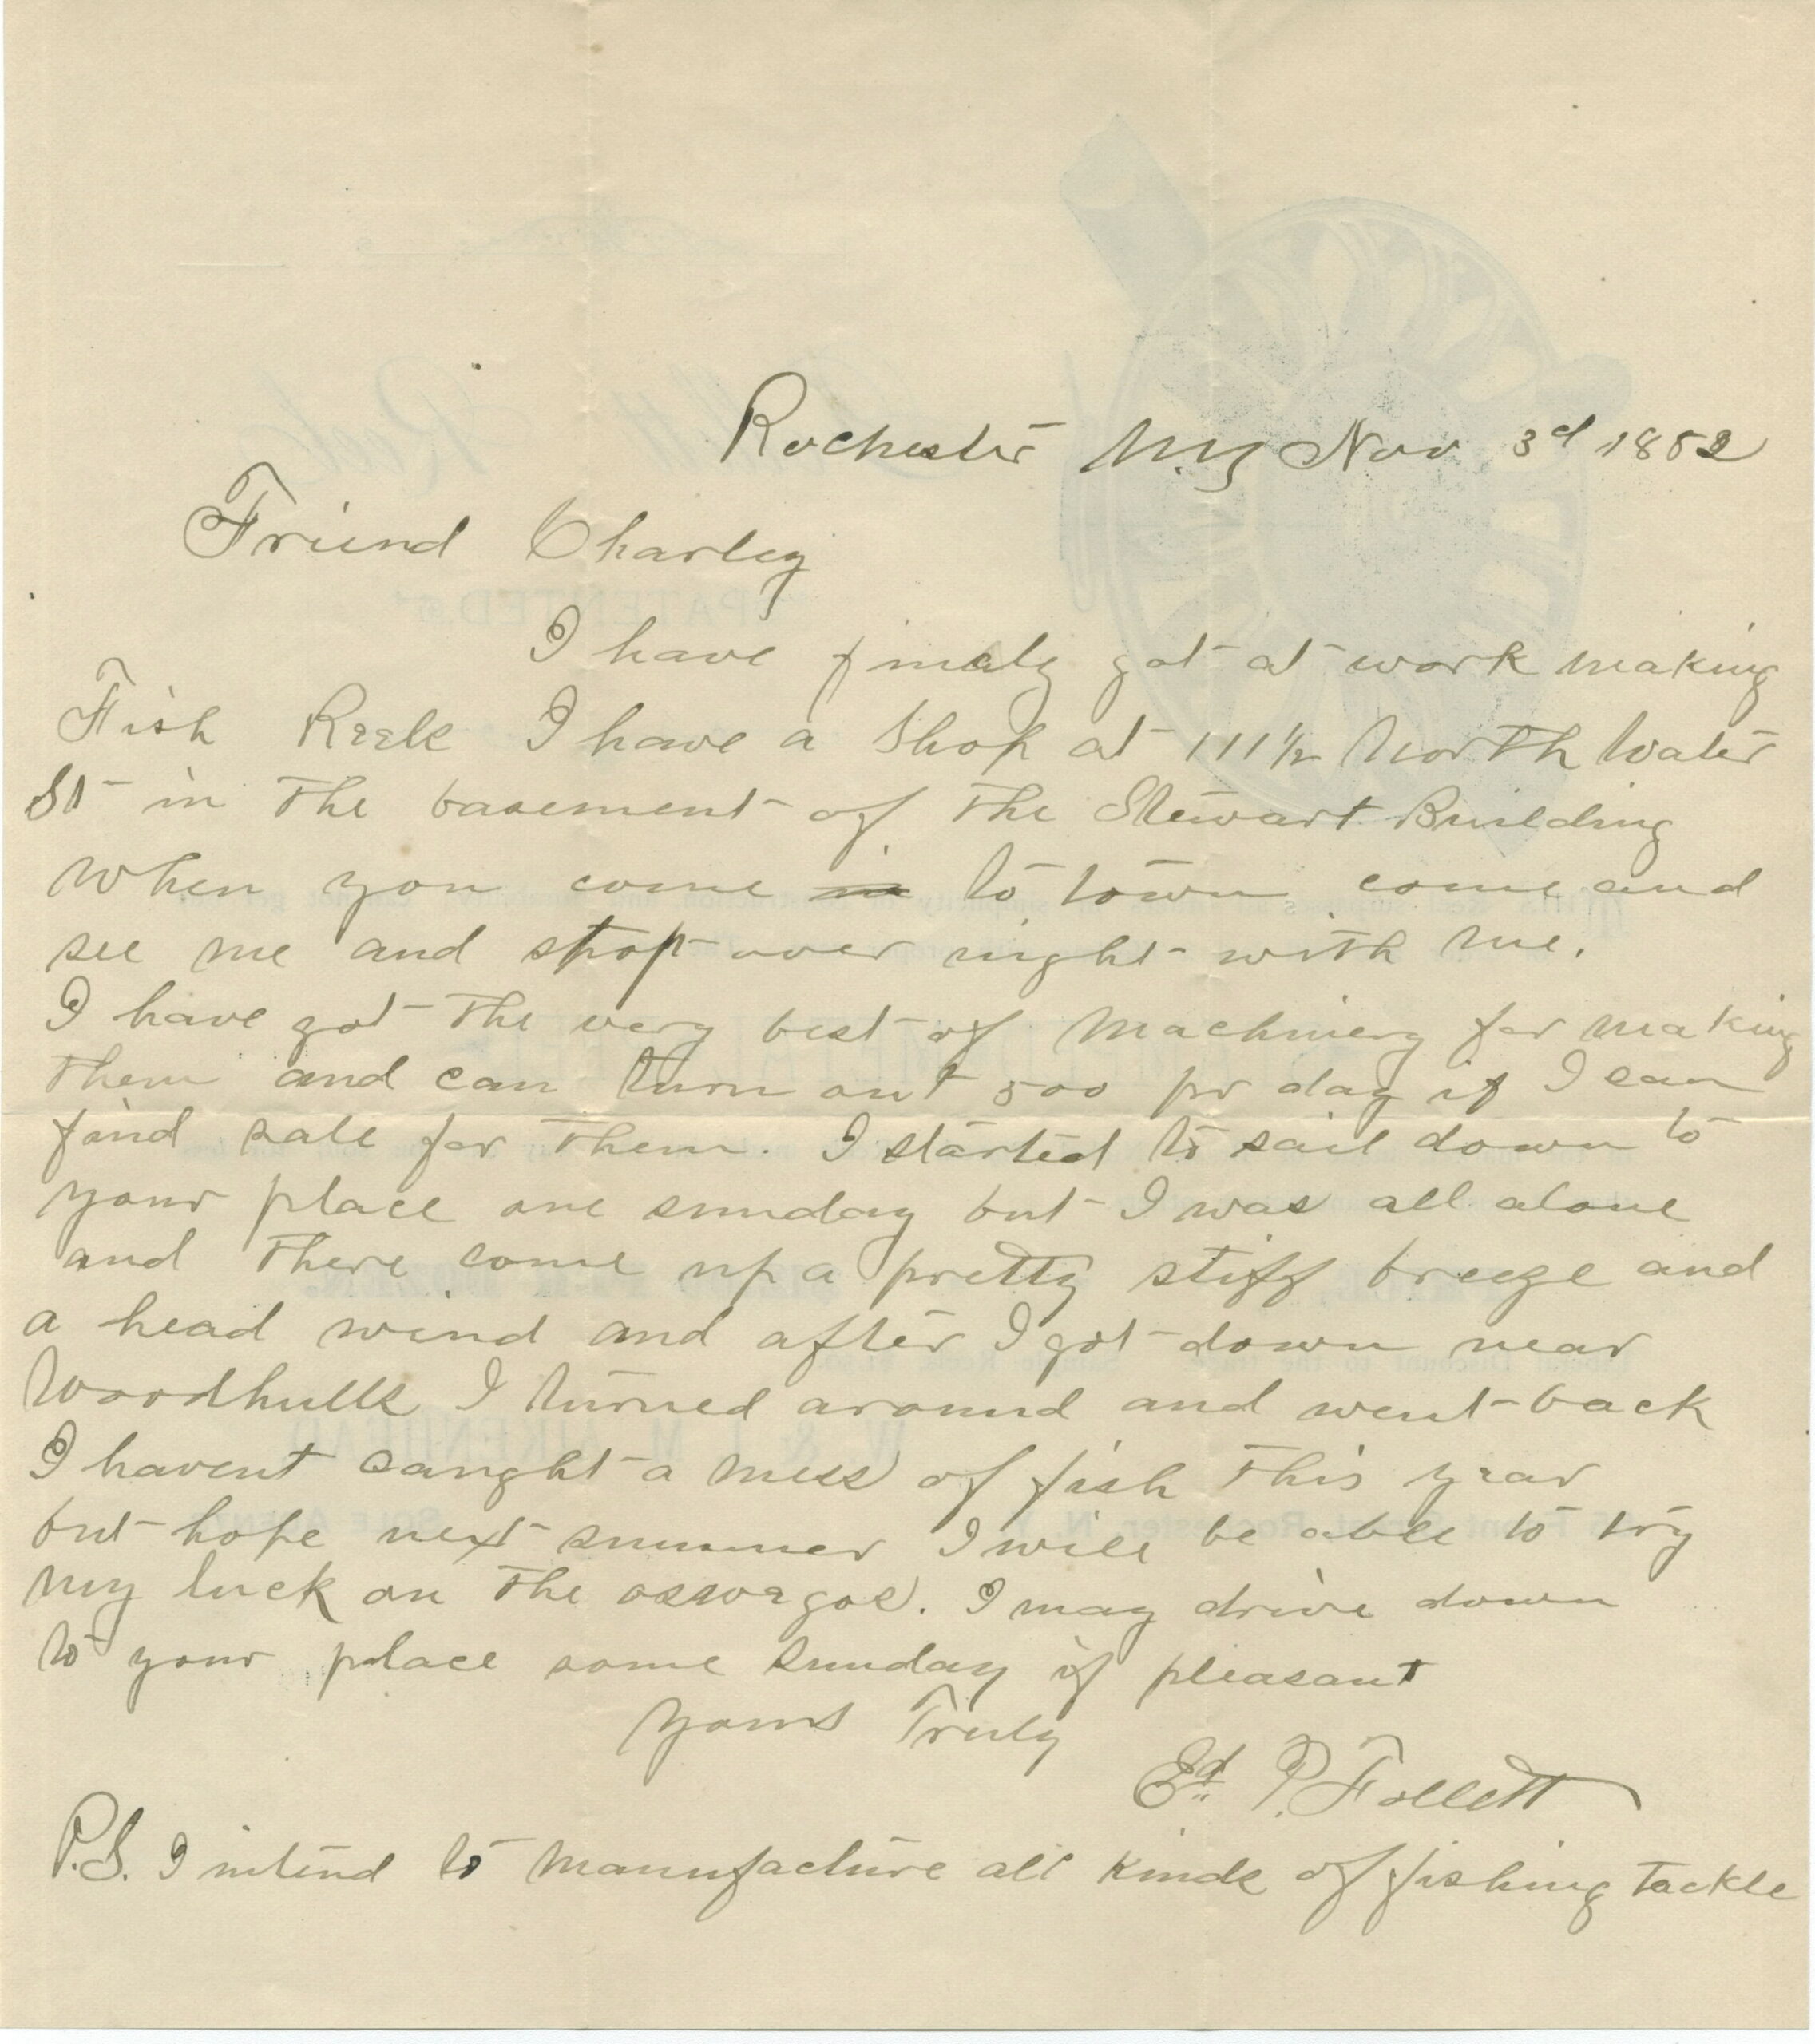 Rochester N.Y Nov 3d 1882
Friend Charley
I have finaly got at work making
Fish Reels I have a Shop at 111 1/2 North Water
St in The basement of The Stewart Building
When you come ~~in~~ to town come and
see me and stop over night with me.
I have got The very best of Machinery for making
Them and can turn out 500 pr day if I can
find sale for Them. I started to sail down to
your place one sunday but I was all alone
and There come up a pretty stiff breeze and
a head wind and after I got down near
Woodhulls I turned around and went back
I havent caught a mess of fish This year
but hope next summer I will be able to try
my luck on The oswegos. I may drive down
to your place some Sunday if pleasant
Yours Truly
Ed. P. Follett
P.S. I intend to manufacture all kinds of fishing Tackle
PATENTED
W. & J. M. AIKENHEAD
Front Street, Rochester, N. Y.
SOLE AGENTS